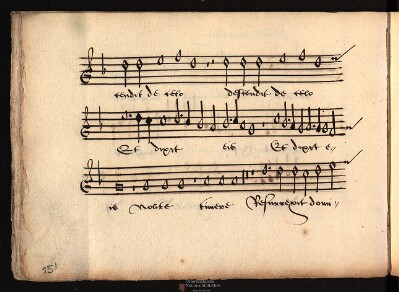 cendit de celo descendit de celo
Et dixit eis Et dixit e-
is Nolite timere Resurrexit domi-
15'